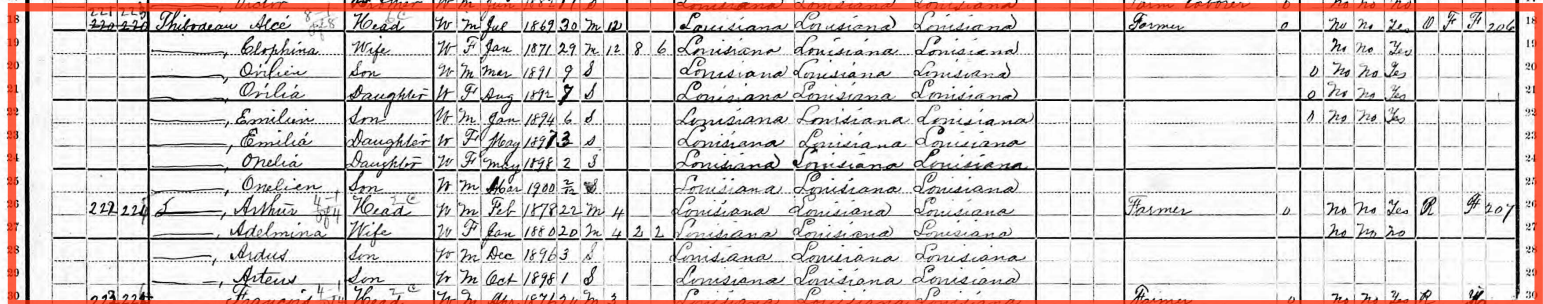 18 Thibodeau Alcé Head W M Jul 1869 30 M 12 Louisiana Louisiana Louisiana Farmer 0 No No Yes O F F 206 18
19 ——, Clophina Wife W F Jan 1871 29 M 12 8 6 Louisiana Louisiana Louisiana No No Yes 19
20 ——, Ovilien Son W M Mar 1891 9 S Louisiana Louisiana Louisiana 0 No No Yes 20
21 ——, Ovilia Daughter W F Aug 1892 7 S Louisiana Louisiana Louisiana 0 No No Yes 21
22 ——, Emilien Son W M Jan 1894 6 S Louisiana Louisiana Louisiana 0 No No Yes 22
23 ——, Emilia Daughter W F May 1897 3 S Louisiana Louisiana Louisiana 23
24 ——, Onelia Daughter W F May 1898 2 S Louisiana Louisiana Louisiana 24
25 ——, Onelien Son W M Mar 1900 2/12 S Louisiana Louisiana Louisiana 25
26 222 224 ——, Arthur Head W M Feb 1878 22 M 4 Louisiana Louisiana Louisiana Farmer 0 No No Yes R F 207 26
27 ——, Adelmina Wife W F Jan 1880 20 M 4 2 2 Louisiana Louisiana Louisiana No No No 27
28 ——, Ardus Son W M Dec 1896 3 S Louisiana Louisiana Louisiana 28
29 ——, Arteus Son W M Oct 1898 1 S Louisiana Louisiana Louisiana 29
30 Head W M M 3 Louisiana Louisiana Louisiana Farmer 0 No No Yes R 30